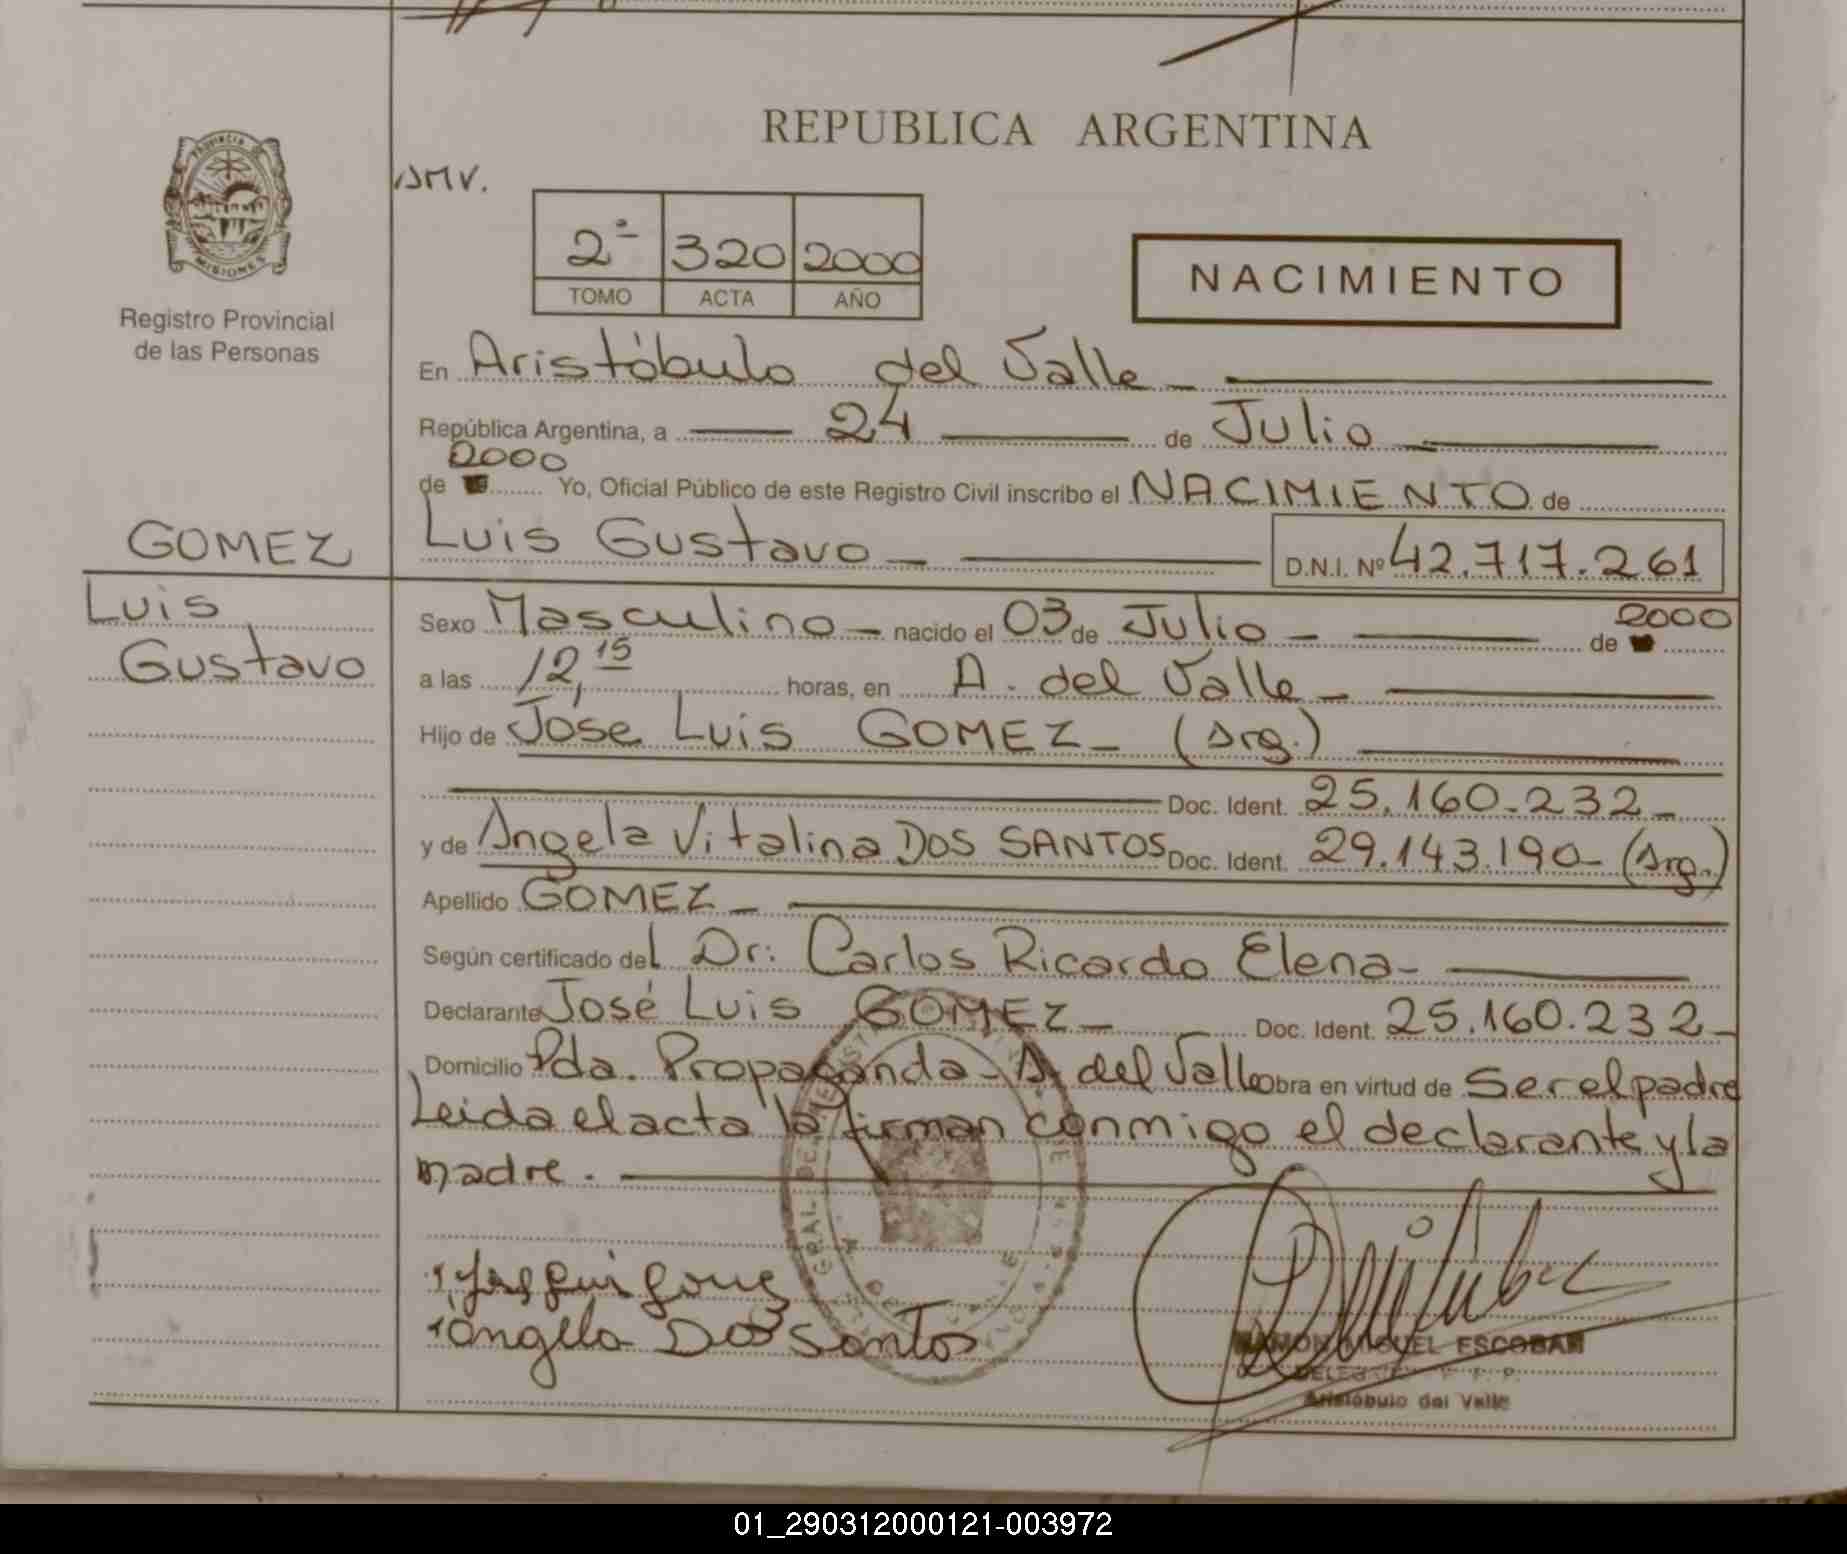 REPUBLICA ARGENTINA
PROVINCIA DE
MISIONES
Registro Provincial
de las Personas
SMV.
2º 320 2000
TOMO ACTA AÑO
NACIMIENTO
En Aristóbulo del Valle
República Argentina, a 24 de Julio
2000
de Yo, Oficial Público de este Registro Civil inscribo el NACIMIENTO de
GOMEZ
Luis Gustavo D.N.I. Nº 42.717.261
Luis
Gustavo
Sexo Masculino nacido el 03 de Julio de 2000
a las 12,15 horas, en A. del Valle
Hijo de José Luis GOMEZ (Arg.)
Doc. Ident. 25.160.232
y de Angela Vitalina DOS SANTOS Doc. Ident. 29.143.190 (Arg.)
Apellido GOMEZ
Según certificado del Dr: Carlos Ricardo Elena
Declarante José Luis GOMEZ Doc. Ident. 25.160.232
Domicilio Pda. Propaganda - A. del Valle obra en virtud de Ser el padre
Leida el acta la firman conmigo el declarante y la
madre.
Angela Dos Santos
RAMON MIGUEL ESCOBAR
Aristóbulo del Valle
01_290312000121-003972